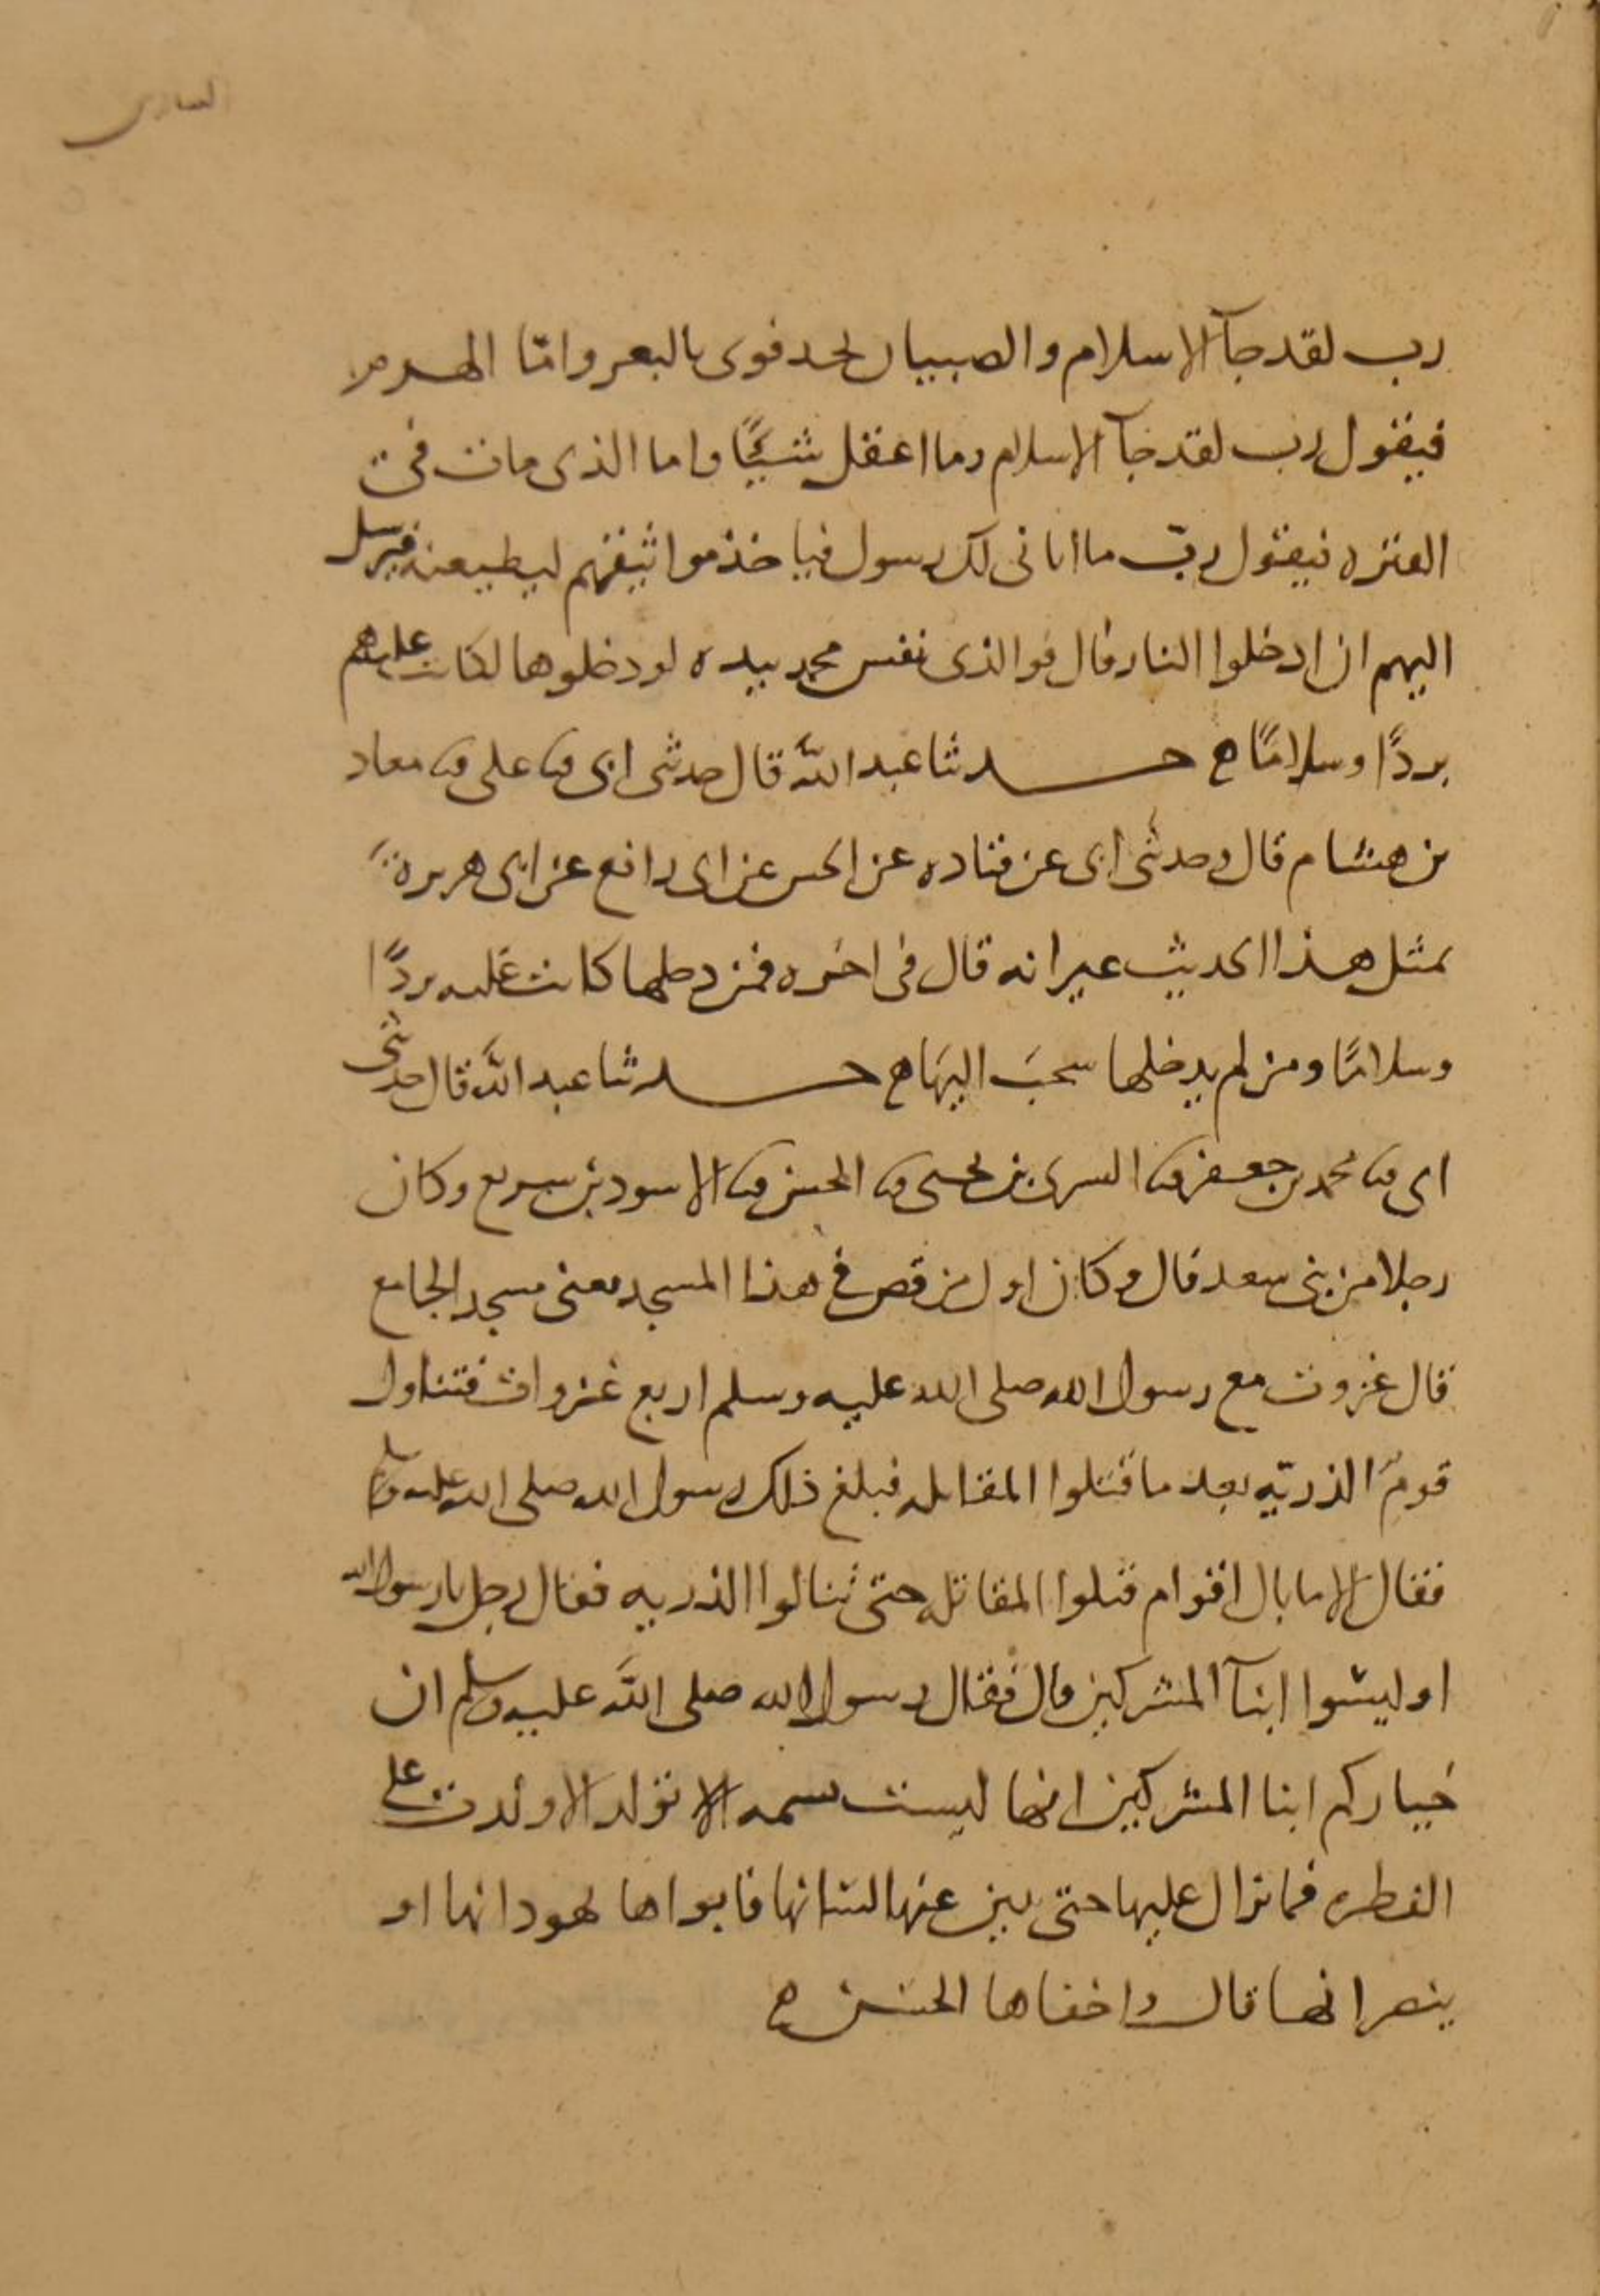 رب لقد جآ الاسلام والصبيان يحدفونى بالبعر وامّا الهرم
فيقول رب لقد جآ الاسلام وما اعقل شيئًا واما الذى مات فى
الفتره فيقول ربّ ما اتانى لك رسول فياخذ مواثيقهم ليطيعنه فيرسل
اليهم ان ادخلوا النار قال فوالذى نفس محمد بيده لو دخلوها لكانت عليهم
بردًا وسلامًا ه حدثنا عبد الله قال حدثنى ابى ثنا على ثنا معاد
بن هشام قال وحدثنى ابى عن قتاده عن الحسن عن ابى رافع عن ابى هريرة
بمثل هذا الحديث غير انه قال فى اخره فمن دخلها كانت عليه بردًا
وسلامًا ومن لم يدخلها سحبَ اليهَا ه حدثنا عبد الله قال حدثنى
ابى ثنا محمد بن جعفر ثنا السرى بن يحيى ثنا الحسن ثنا الاسود بن سريع وكان
رجلا من بنى سعد قال وكان اول من قص فى هذا المسجد يعنى مسجد الجامع
قال غزوت مع رسول الله صلى الله عليه وسلم اربع غزوات فتناول
قومٌ الذريّه بعد ما قتلوا المقاتله فبلغ ذلك رسول الله صلى الله عليه وسلم
فقال الا ما بال اقوام قتلوا المقاتله حتى تنالوا الذريه فقال رجل يا رسول الله
او ليسوا ابنآ المشركين قال فقال رسول الله صلى الله عليه وسلم ان
خياركم ابنا المشركين انها ليست نسمه الا تولد الا ولدت على
الفطره فما تزال عليها حتى يبين عنها لسانها فابواها يهودانها او
ينصرانها قال واخفاها الحسن ه